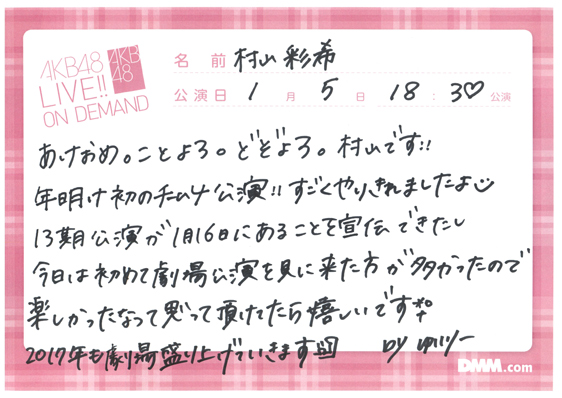 AKB48
LIVE!!
ON DEMAND
AKB
48
名 前 村山 彩希
公演日 1 月 5 日 18 : 30 公演
あけおめ。ことよろ。どぞよろ。村山です!!
年明け初のチーム4公演!! すごくやりきれましたよ
13期公演が1月16日にあることを宣伝できたし
今日は初めて劇場公演を見に来た方が多かったので
楽しかったなって思って頂けてたら嬉しいです
2017年も劇場盛り上げていきます
by ゆいりー
DMM.com